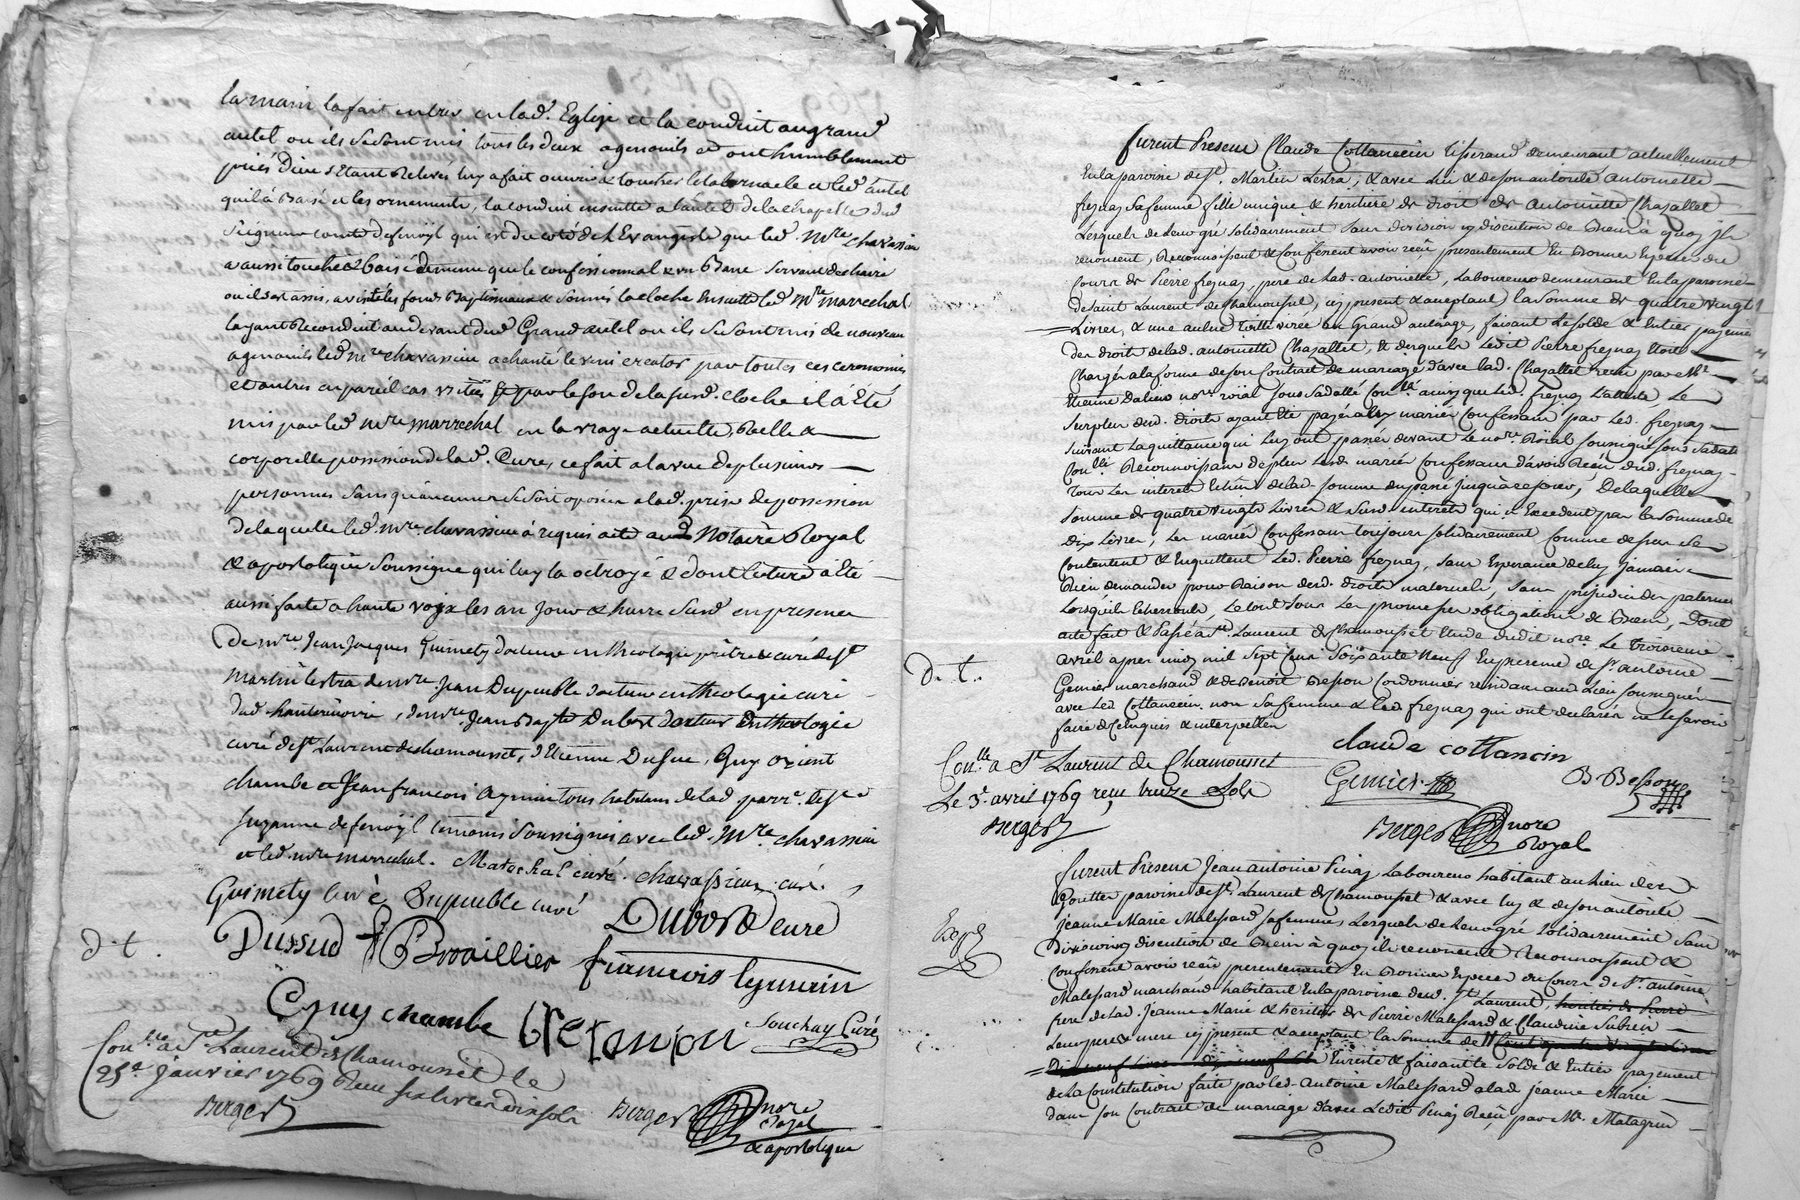 la main la fait entrer en lad. Eglise et la conduit au grand
autel ou ils se sont mis tous les deux a genouils et ont humblement
priés Dieu s'Etant Relevés luy a fait ouvrir & toucher le tabernacle et led. autel
qu'il à Baisé et les ornements, la conduit ensuitte a l'autel de la chapelle dud
Seigneur comte defenoÿl qui est du coté de l'Evangile que led. Mre chavassieu
a aussi touché & baisé de meme que le confessionnal & un Banc servant de chaire
ou il s'est assis, a visité les fonds Baptismaux & sonné la cloche Ensuitte led Mre marrechal
layant Reconduit au devant dud Grand autel ou ils se sont mis de nouveau
a genouils led mre chavassieu a chanté le veni creator par toutes ces ceremonies
et autres en pareil cas par le son de la susd. cloche il à Eté
mis par led mre marrechal en la vraye actuelle, Reelle &
corporelle possession de lad. Cure, ce fait a la vue de plusieurs
personnes sans qu'aucune se soit oposée a lad. prise de possession
de laquelle led. mre chavassieu à requis acte au Notaire Royal
& apostolique Soussigné qui luy la octroyé & dont lecture à Eté
aussi faite a haute voix les an jour & heure susd. en presence
De mre Jean Jacques Guimety docteur en theologie prêtre & curé de St
martin lestra de mre Jean Dupeuble docteur en theologie curé
dud hauterivoire, de mre Jean Bapte Dubost docteur En theologie
curé de St Laurent de chamousset, d'Etienne Dussud, Guy
chambe et Jean francois Aymin tous habitans de lad parre. de Ste
suzanne defenoÿl temoins Soussignés avec led. Mre chavassieu
et led. mre marrechal. Marechal curé. chavassieux. curé.
Guimety curé Dupeuble curé Dubost curé
Dussud Brvaillier francois Eymin
Guy chambe Souchay Curé
d. t.
Conlle a St Laurent de Chamousset le
25e janvier 1769 Reçu six livres dix sols
Berger
Berger nore
Royal
& apostolique
furent Presens Claude Cottancin tisserand demeurant actuellement
En la paroisse de St. Martin Lestra; & avec lui & de son autorité Antoinette
fregnay sa femme fille unique & heritiere de droit de Antoinette Chazallet
Lesquels de leur gré solidairement sans division ny discution de Bien à quoy ils
renoncent, Reconnoissent & Confessent avoir reçu presentement En Bonnes Especes du
Cours de Pierre fregnay, pere de lad. antoinette, Laboureur demeurant En la paroisse
de Saint Laurent de Chamousset, icy present & aceptant la somme de quatre vingt
Livres, & une aulne toille virée au Grand aulnage, faisant le solde & Entier payement
des droits de lad. antoinette Chazallet, & desquels ledit Pierre fregnay Etoit
Chargé a la forme de son Contrat de mariage d'avec lad. Chazallet reçu par Me
Etienne Dalieu nore. roïal sous sa datté Conllé ainsy que led. fregnay l'atteste, Le
surplus desd. droits ayant Eté payé aux mariés Confessant par led. fregnay
suivant la quittance qui leur ont passée devant le nore. Roïal soussigné sous sa datte
Conllé Reconnoissant de plus lesd. mariés Confessans d'avoir Reçu dud. fregnay
tous les interets Echus de lad. somme du passé jusqu'à ce jour, De laquelle
somme de quatre vingts Livres & susd. interets qui n'Excedent pas la somme de
Dix Livres, Les mariés Confessans toujours solidairement Comme dessus se
Contentent & En quittent led. Pierre fregnay, sans Esperance de luy jamais
Rien demander pour Raison desd. droits maternels, sans préjudice des paternels
Lorsqu'ils Echerront, Le tout sous les promesses obligations de Biens, Dont
acte fait & Passé à St. Laurent de Chamousset Etude dudit nore. Le troisieme
avril apres midy mil sept Cent soixante neuf En presence de Sr antoine
Gemier marchand & de Benoit Besson Cordonnier residants aud Lieu soussignés
avec led Cottancin non sa femme & led fregnay qui ont declarés ne le savoir
faire de Ce enquis & interpellés
claude cottancin
Gemier B Besson
Berger nore
Royal
d. t.
Conlle a St Laurent de Chamousset
Le 3e avril 1769 reçu treize sols
Berger
furent Presens Jean antoine Pinay Laboureur habitant au Lieu des
Gouttes paroisse de St Laurent de Chamousset & avec luy & de son autorité
jeanne Marie Malessard sa femme, Lesquels de leur gré solidairement sans
Division ny discution de Biens à quoy ils renoncent Reconnoissent &
Confessent avoir reçu presentement En Bonnes Especes du Cours de Sr. antoine
Malessard marchand habitant En la paroisse dud. St. Laurent, heritier de Pierre
frere de lad. Jeanne Marie & heritier de Pierre Malessard & Claudine Subrin
Leurs pere & mere icy present & aceptant la somme de
En reste & faisant le solde & Entier payement
de la Constitution faite par led. Antoine Malessard a lad jeanne Marie
dans son Contrat de mariage d'avec Ledit Pinay Reçu par Me. Matagrin